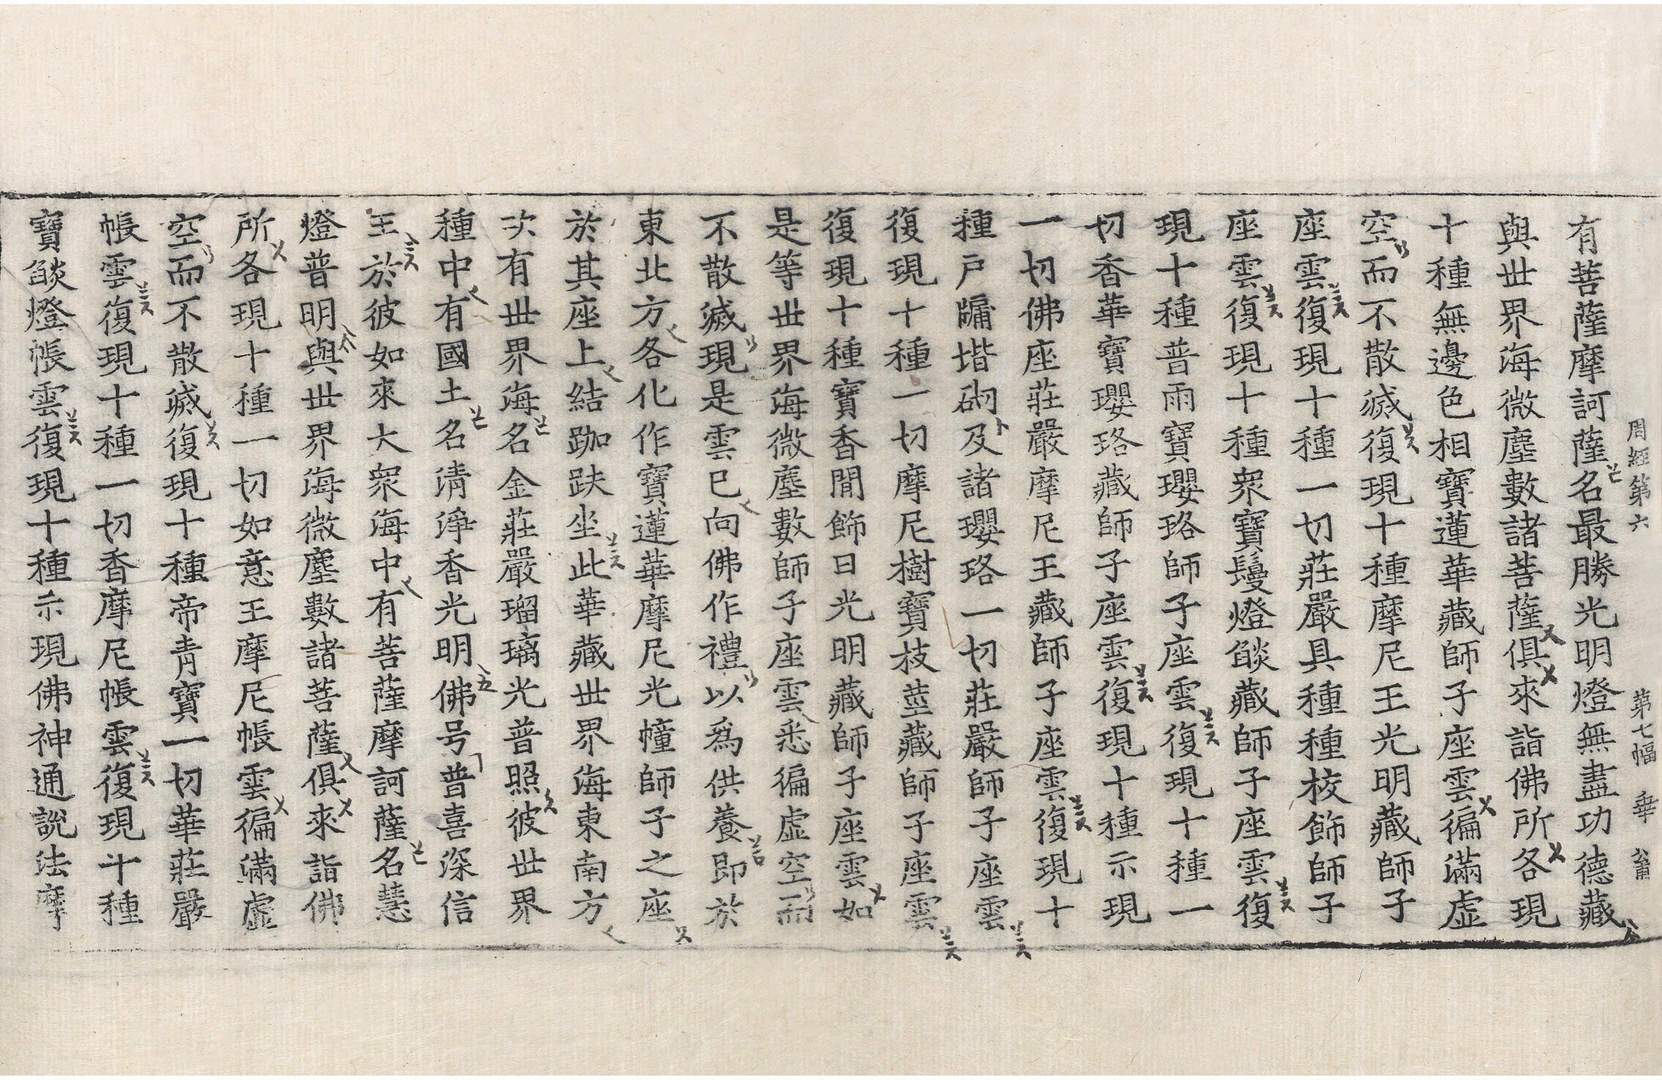 周經第六 第七幅 華 公甫
有菩薩摩訶薩名最勝光明燈無盡功德藏
與世界海微塵數諸菩薩俱來詣佛所各現
十種無邊色相寶蓮華藏師子座雲徧滿虛
空而不散滅復現十種摩尼王光明藏師子
座雲復現十種一切莊嚴具種種校飾師子
座雲復現十種衆寶鬘燈燄藏師子座雲復
現十種普雨寶瓔珞師子座雲復現十種一
切香華寶瓔珞藏師子座雲復現十種示現
一切佛座莊嚴摩尼王藏師子座雲復現十
種戶牖堦砌及諸瓔珞一切莊嚴師子座雲
復現十種一切摩尼樹寶枝莖藏師子座雲
復現十種寶香閒飾日光明藏師子座雲如
是等世界海微塵數師子座雲悉徧虛空而
不散滅現是雲已向佛作禮以爲供養即於
東北方各化作寶蓮華摩尼光幢師子之座
於其座上結跏趺坐此華藏世界海東南方
次有世界海名金莊嚴瑠璃光普照彼世界
種中有國土名清淨香光明佛号普喜深信
王於彼如來大衆海中有菩薩摩訶薩名慧
燈普明與世界海微塵數諸菩薩俱來詣佛
所各現十種一切如意王摩尼帳雲徧滿虛
空而不散滅復現十種帝青寶一切華莊嚴
帳雲復現十種一切香摩尼帳雲復現十種
寶燄燈帳雲復現十種示現佛神通說法摩